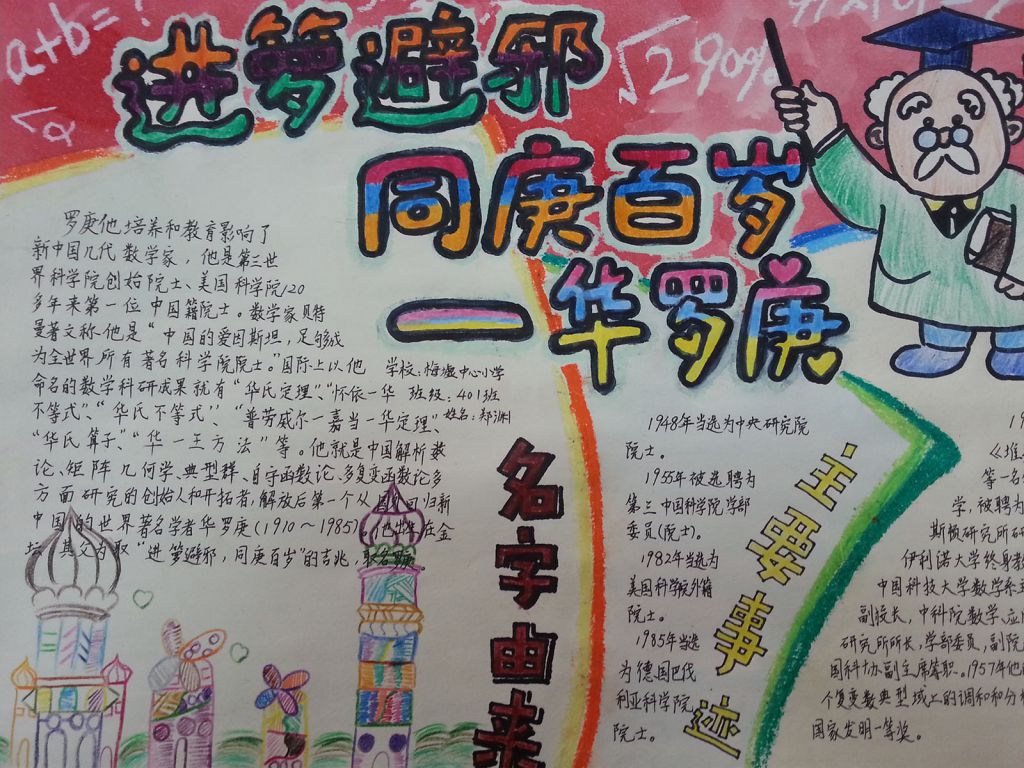 a+b=
?
√2 90%
进箩避邪
同庚百岁
一华罗庚
罗庚他培养和教育影响了
新中国几代数学家，他是第三世
界科学院创始院士、美国科学院120
多年来第一位中国籍院士。数学家贝特
曼著文称·他是“中国的爱因斯坦，足够成
为全世界所有著名科学院院士。”国际上以他
命名的数学科研成果就有“华氏定理”、“怀依一华
不等式”、“华氏不等式”、“普劳威尔一嘉当一华定理”、
“华氏算子”、“华一王方法”等。他就是中国解析数
论、矩阵几何学、典型群、自守函数论、多复变函数论多
方面研究的创始人和开拓者，解放后第一个从回归新
中国的世界著名学者华罗庚（1910～1985）他在金
其父为取“进箩避邪，同庚百岁”的吉兆，取名
学校：梅堰中心小学
班级：401班
姓名：郑渊
名字由来
1948年当选为中央研究院
院士。
1955年被选聘为
第三中国科学院学部
委员（院士）。
1982年当选为
美国科学院外籍
院士。
1985年当选
为德国巴伐
利亚科学院
院士。
主要事迹
19
《堆
等一名
学，被聘为
斯顿研究所研
伊利诺大学终身教
中国科技大学数学系主
副校长，中科院数学、应
研究所所长，学部委员，副院
国科协副主席等职。1957年他
个复变数典型域上的调和和分析
国家发明一等奖。